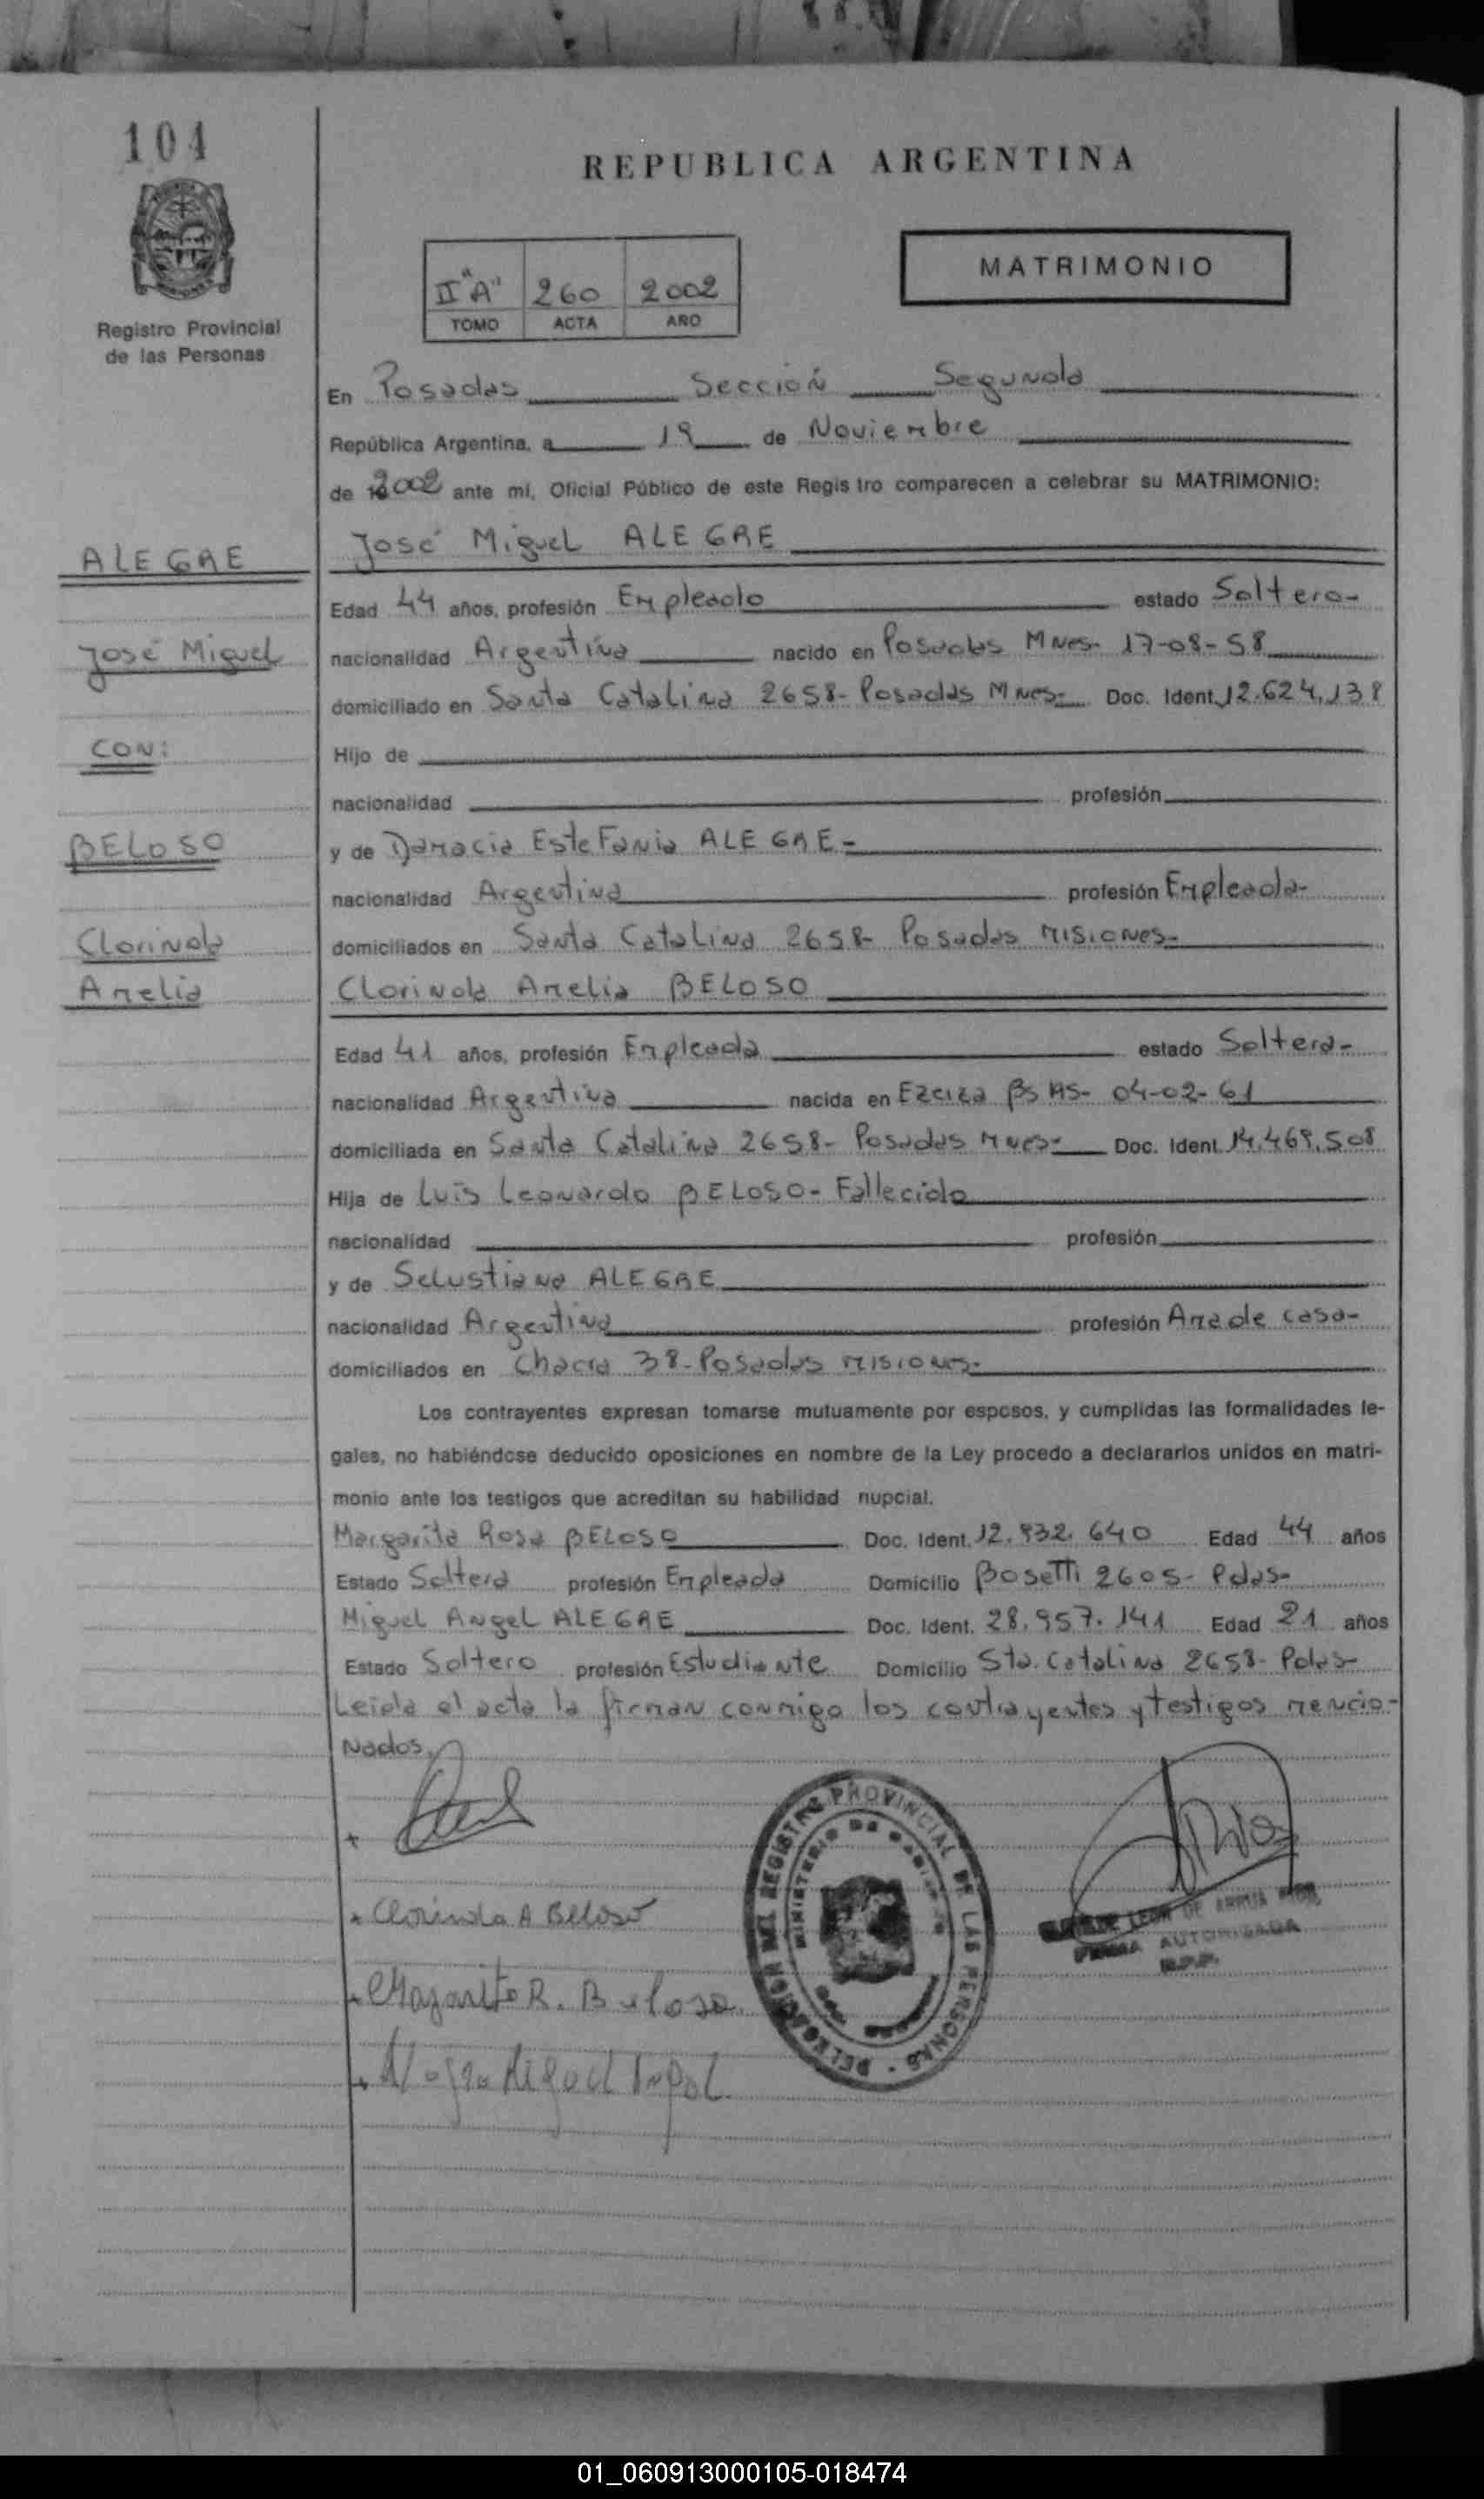 104
REPUBLICA ARGENTINA
MATRIMONIO
II "A" 260 2002
TOMO ACTA AÑO
Registro Provincial
de las Personas
En Posadas Sección Segunda
República Argentina, a 19 de Noviembre
de 2002 ante mí, Oficial Público de este Registro comparecen a celebrar su MATRIMONIO:
ALEGRE
José Miguel ALEGRE
Edad 44 años, profesión Empleado estado Soltero-
José Miguel
nacionalidad Argentina nacido en Posadas Mnes- 17-08-58
domiciliado en Santa Catalina 2658- Posadas Mnes- Doc. Ident. 12.624.138
CON:
Hijo de
nacionalidad profesión
BELOSO
y de Damacia Estefania ALEGRE-
nacionalidad Argentina profesión Empleada-
Clorinda
domiciliados en Santa Catalina 2658- Posadas Misiones-
Amelia
Clorinda Amelia BELOSO
Edad 41 años, profesión Empleada estado Soltera-
nacionalidad Argentina nacida en Ezeiza Bs As- 04-02-61
domiciliada en Santa Catalina 2658- Posadas Mnes- Doc. Ident. 14.469.508
Hija de Luis Leonardo BELOSO- Fallecido
nacionalidad profesión
y de Selustiana ALEGRE
nacionalidad Argentina profesión Ama de casa-
domiciliados en Chacra 38- Posadas Misiones-
Los contrayentes expresan tomarse mutuamente por esposos, y cumplidas las formalidades le-
gales, no habiéndose deducido oposiciones en nombre de la Ley procedo a declararlos unidos en matri-
monio ante los testigos que acreditan su habilidad nupcial.
Margarita Rosa BELOSO Doc. Ident. 12.932.640 Edad 44 años
Estado Soltera profesión Empleada Domicilio Bosetti 2605- Pdas-
Miguel Angel ALEGRE Doc. Ident. 28.957.141 Edad 21 años
Estado Soltero profesión Estudiante Domicilio Sta. Catalina 2658- Pdas-
Leida el acta la firman conmigo los contrayentes y testigos mencio-
nados.
Clorinda A Beloso
Margarita R. Beloso.
DELEGACION DEL REGISTRO PROVINCIAL DE LAS PERSONAS
MINISTERIO DE
FIRMA AUTORIZADA
01_060913000105-018474